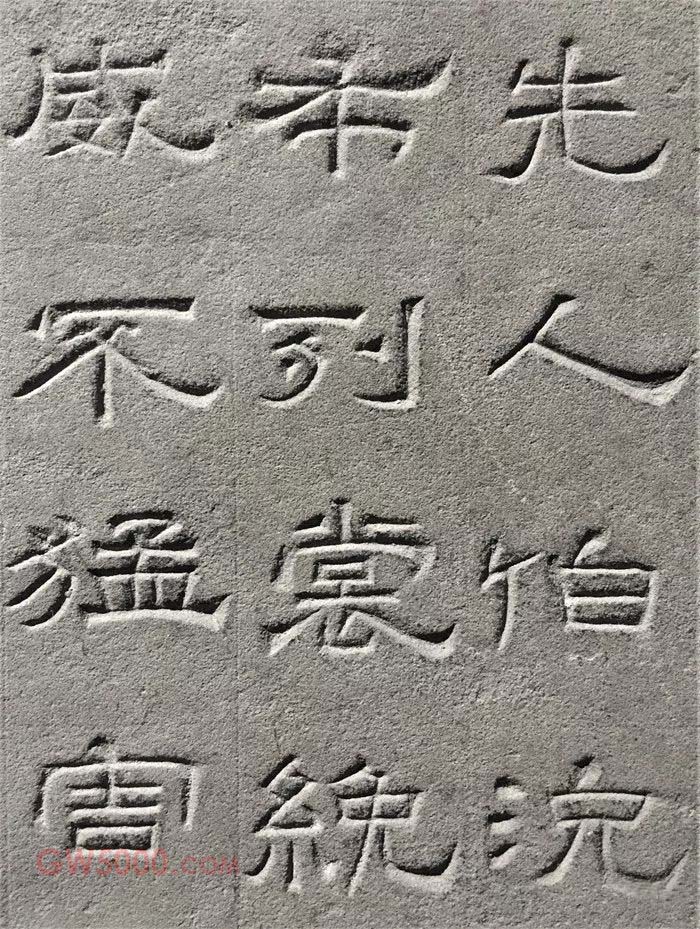 先人伯沇
布列裳絻
威不猛
GW5000.COM